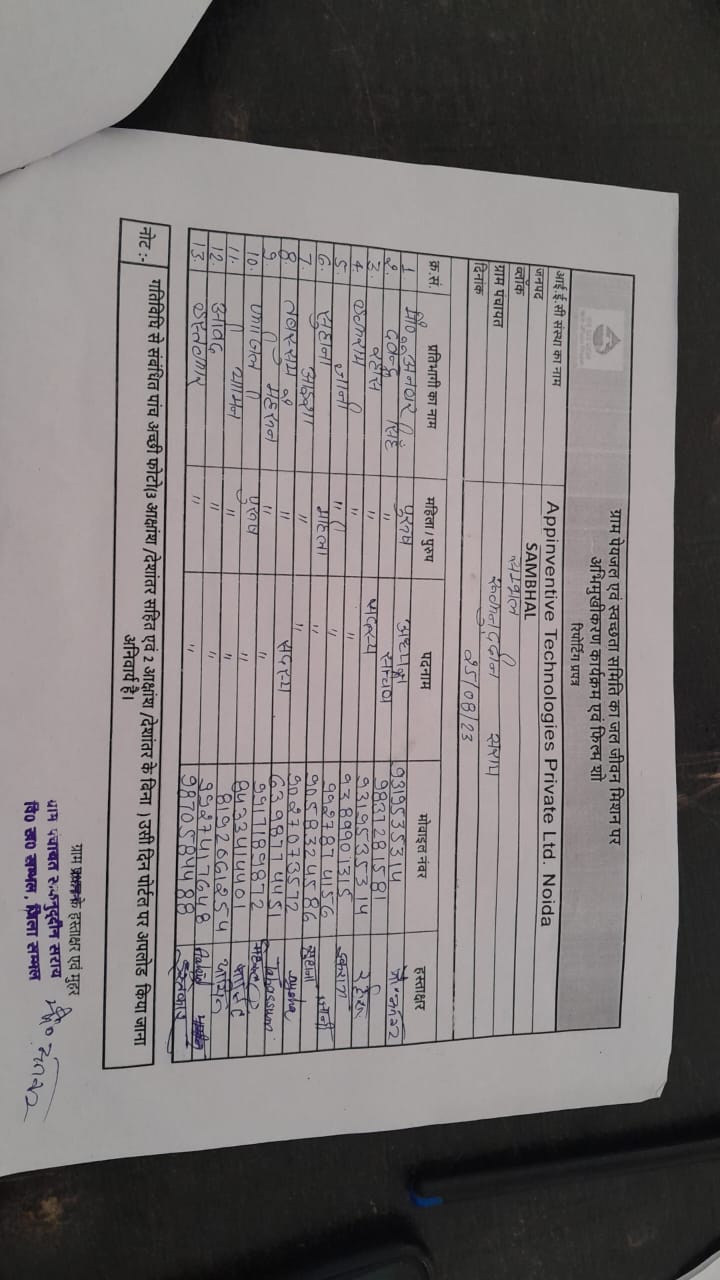 ग्राम पेयजल एवं स्वच्छता समिति का जल जीवन मिशन पर
अभिमुखीकरण कार्यक्रम एवं फिल्म शो
रिपोर्टिंग प्रपत्र
आई.ई.सी संस्था का नाम Appinventive Technologies Private Ltd. Noida
जनपद SAMBHAL
ब्लॉक
ग्राम पंचायत रूकनुद्दीन सराय
दिनांक 25/08/23
क्र.सं. प्रतिभागी का नाम महिला / पुरुष पदनाम मोबाईल नंबर हस्ताक्षर
1. मो० अनवार पुरुष अध्यक्ष 9319535314
2. देवेन्द्र सिंह " सचिव 9837281581
3. " सदस्य 9319535314
4. " "
5. " " 9927874156
6. सुहाना महिला " 9058324586
7. आइशा " " 9027073572 Aysha
8. तबस्सुम " सदस्य 6398774451 Tabassum
9. " " 9917189872
10. पुरुष " 8433414401
11. यामीन " " 819266254
12. " " 9927417648
13. " " 9870584488
नोट :- गतिविधि से संबंधित पांच अच्छी फोटो(3 आक्षांश /देशांतर सहित एवं 2 आक्षांश /देशांतर के बिना ) उसी दिन पोर्टल पर अपलोड किया जाना
अनिवार्य है।
ग्राम के हस्ताक्षर एवं मुहर
ग्राम पंचायत रूकनुद्दीन सराय
वि० ख० सम्भल, जिला सम्भल